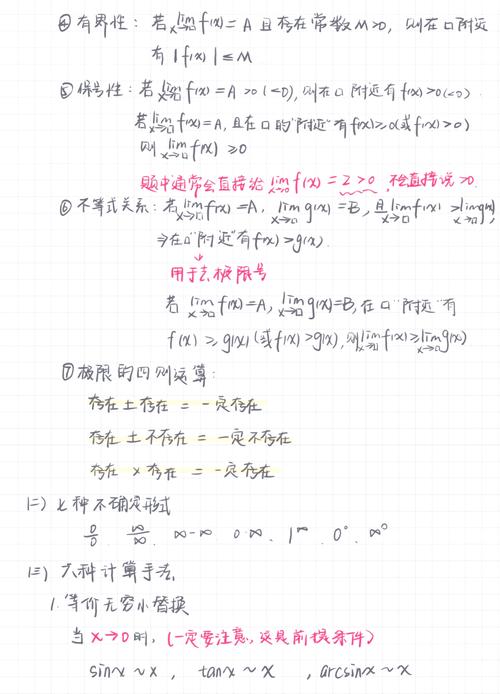 ④ 有界性：若 lim x→□ f(x) = A 且存在常数 M>0, 则在□附近
有 |f(x)| ≤ M
⑤ 保号性：若 lim x→□ f(x) = A >0 (<0), 则在□附近有 f(x)>0 (<0)
若 lim x→□ f(x)=A, 且在□的"附近"有 f(x)≥0(或 f(x)>0)
则 lim x→□ f(x) ≥0
题中通常会直接给 lim x→□ f(x) = 2 >0, 不会直接说 >0.
⑥ 不等式关系：若 lim x→□ f(x) =A, lim x→□ g(x) =B, 且 lim x→□ f(x) > lim x→□ g(x),
⇒在□"附近"有 f(x)>g(x).
↓
用于去极限号
若 lim x→□ f(x)=A, lim x→□ g(x)=B, 在□"附近"有
f(x) ≥ g(x) (或 f(x) > g(x)), 则 lim x→□ f(x) ≥ lim x→□ g(x)
⑦ 极限的四则运算：
存在 ± 存在 = 一定存在
存在 ± 不存在 = 一定不存在
存在 × 存在 = 一定存在
(二) 七种不确定形式
0/0、 ∞/∞、 ∞-∞、 0·∞、 1^∞、 0^0、 ∞^0
(三) 六种计算手法
1. 等价无穷小替换
当 x→0 时, (一定要注意, 这是前提条件)
sinx ~ x , tanx ~ x , arcsinx ~ x